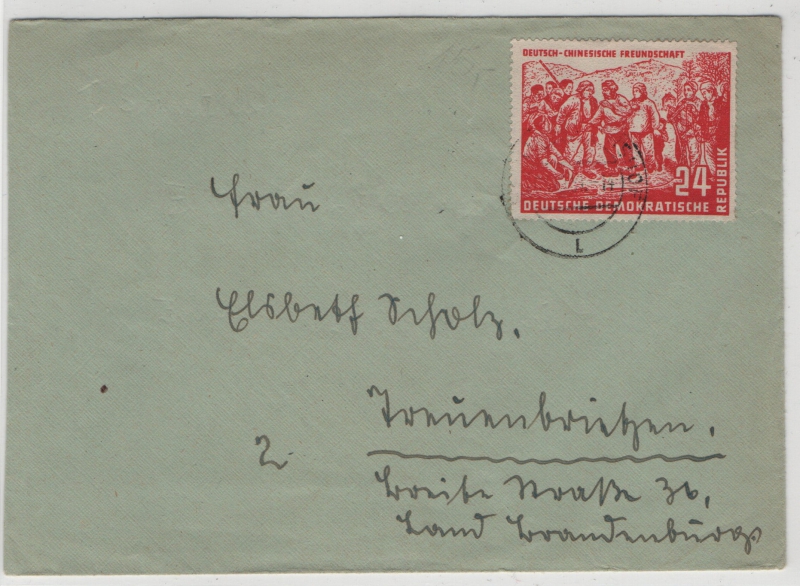 DEUTSCH-CHINESISCHE FREUNDSCHAFT
24
DEUTSCHE DEMOKRATISCHE
REPUBLIK
L
Frau
Elsbeth Scholz.
Treuenbrietzen.
2
Breite Straße
Land Brandenburg